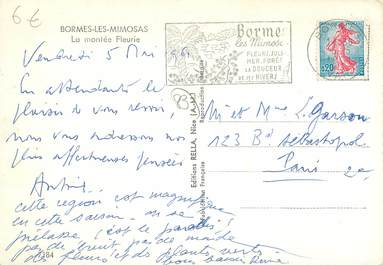 6€
BORMES-LES-MIMOSAS
La montée Fleurie
Vendredi 5 Mai 1961
En attendant le
plaisir de vous revoir,
nous vous adressons nos
plus affectueuses pensées
cette région est magnifique
en cette saison - on se
prélasse, c'est le paradis!
pas de bruit, pas de monde
des fleurs et des plantes vertes
7384
Editions RELLA, Nice (A.-M.)
Reproduction Interdite
Fabrication Française
Bormes
les Mimosas
FLEURI, JOLI
MER, FORÊT
LA DOUCEUR
DE SES HIVERS
0,20
B
Mr et Mme L. Garson
123 Bd Sébastopol
Paris 2e